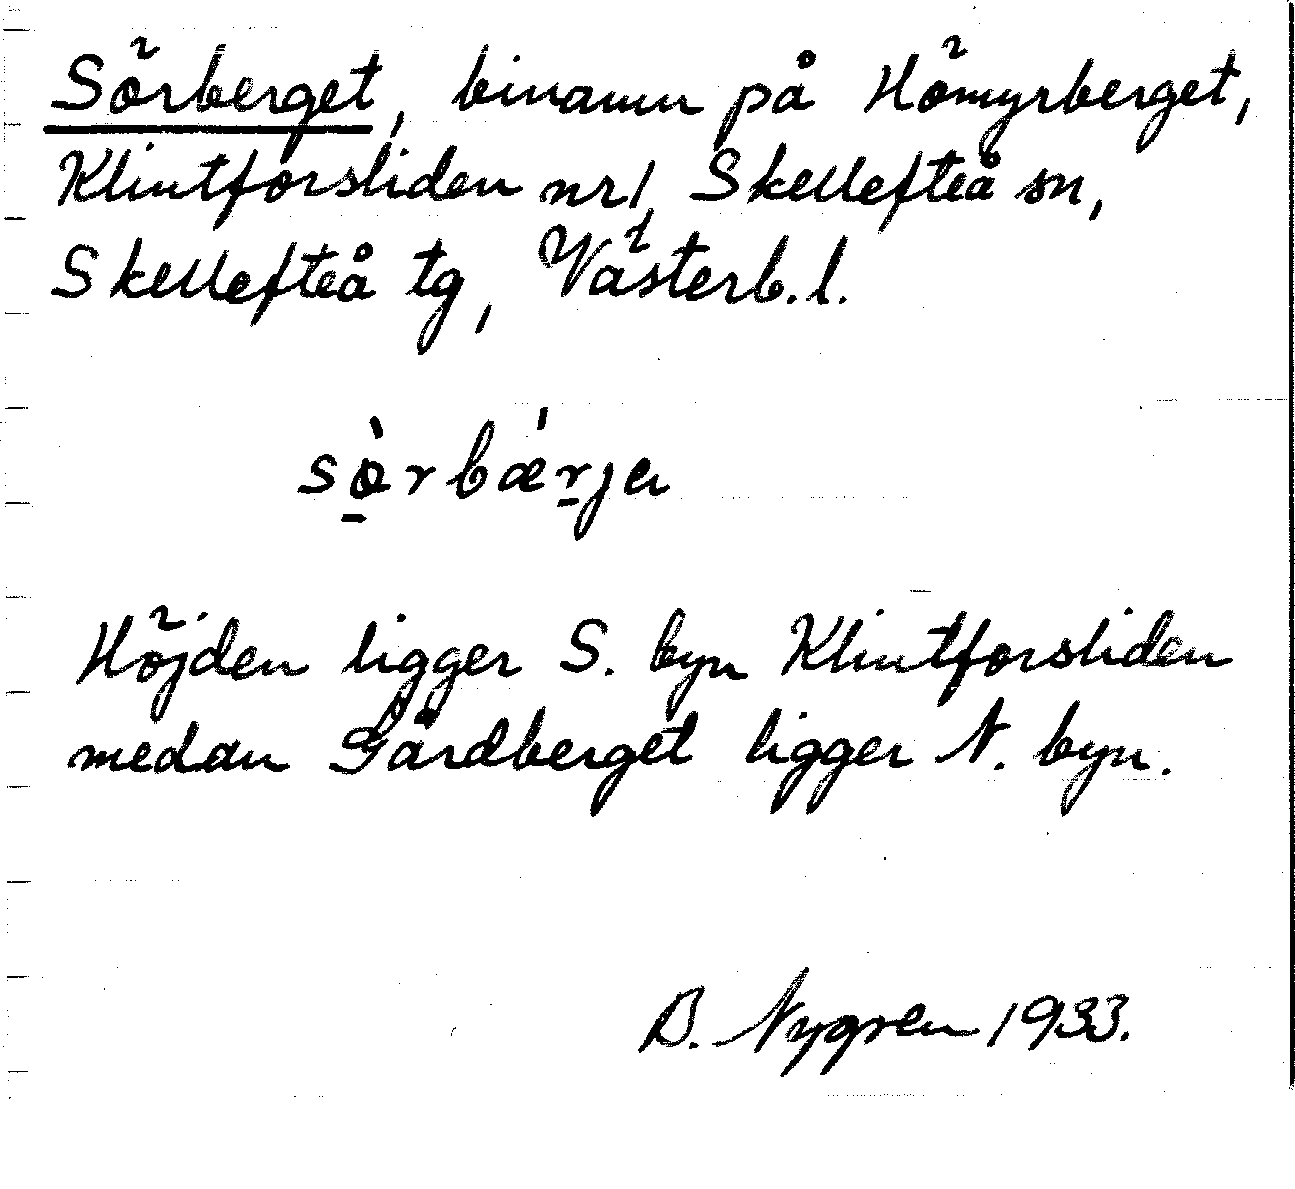 Sörberget, binamn på Hömyrberget,
Klintforsliden nr 1, Skellefteå sn,
Skellefteå tg, Västerb. l.
sò̠rbǽr̠ja
Höjden ligger S. byn Klintforsliden
medan Gårdberget ligger N. byn.
B. Nygren 1933.